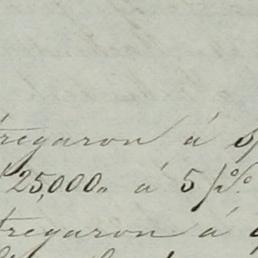 tregaron á
25,000,, á 5 p%.
tregaron á